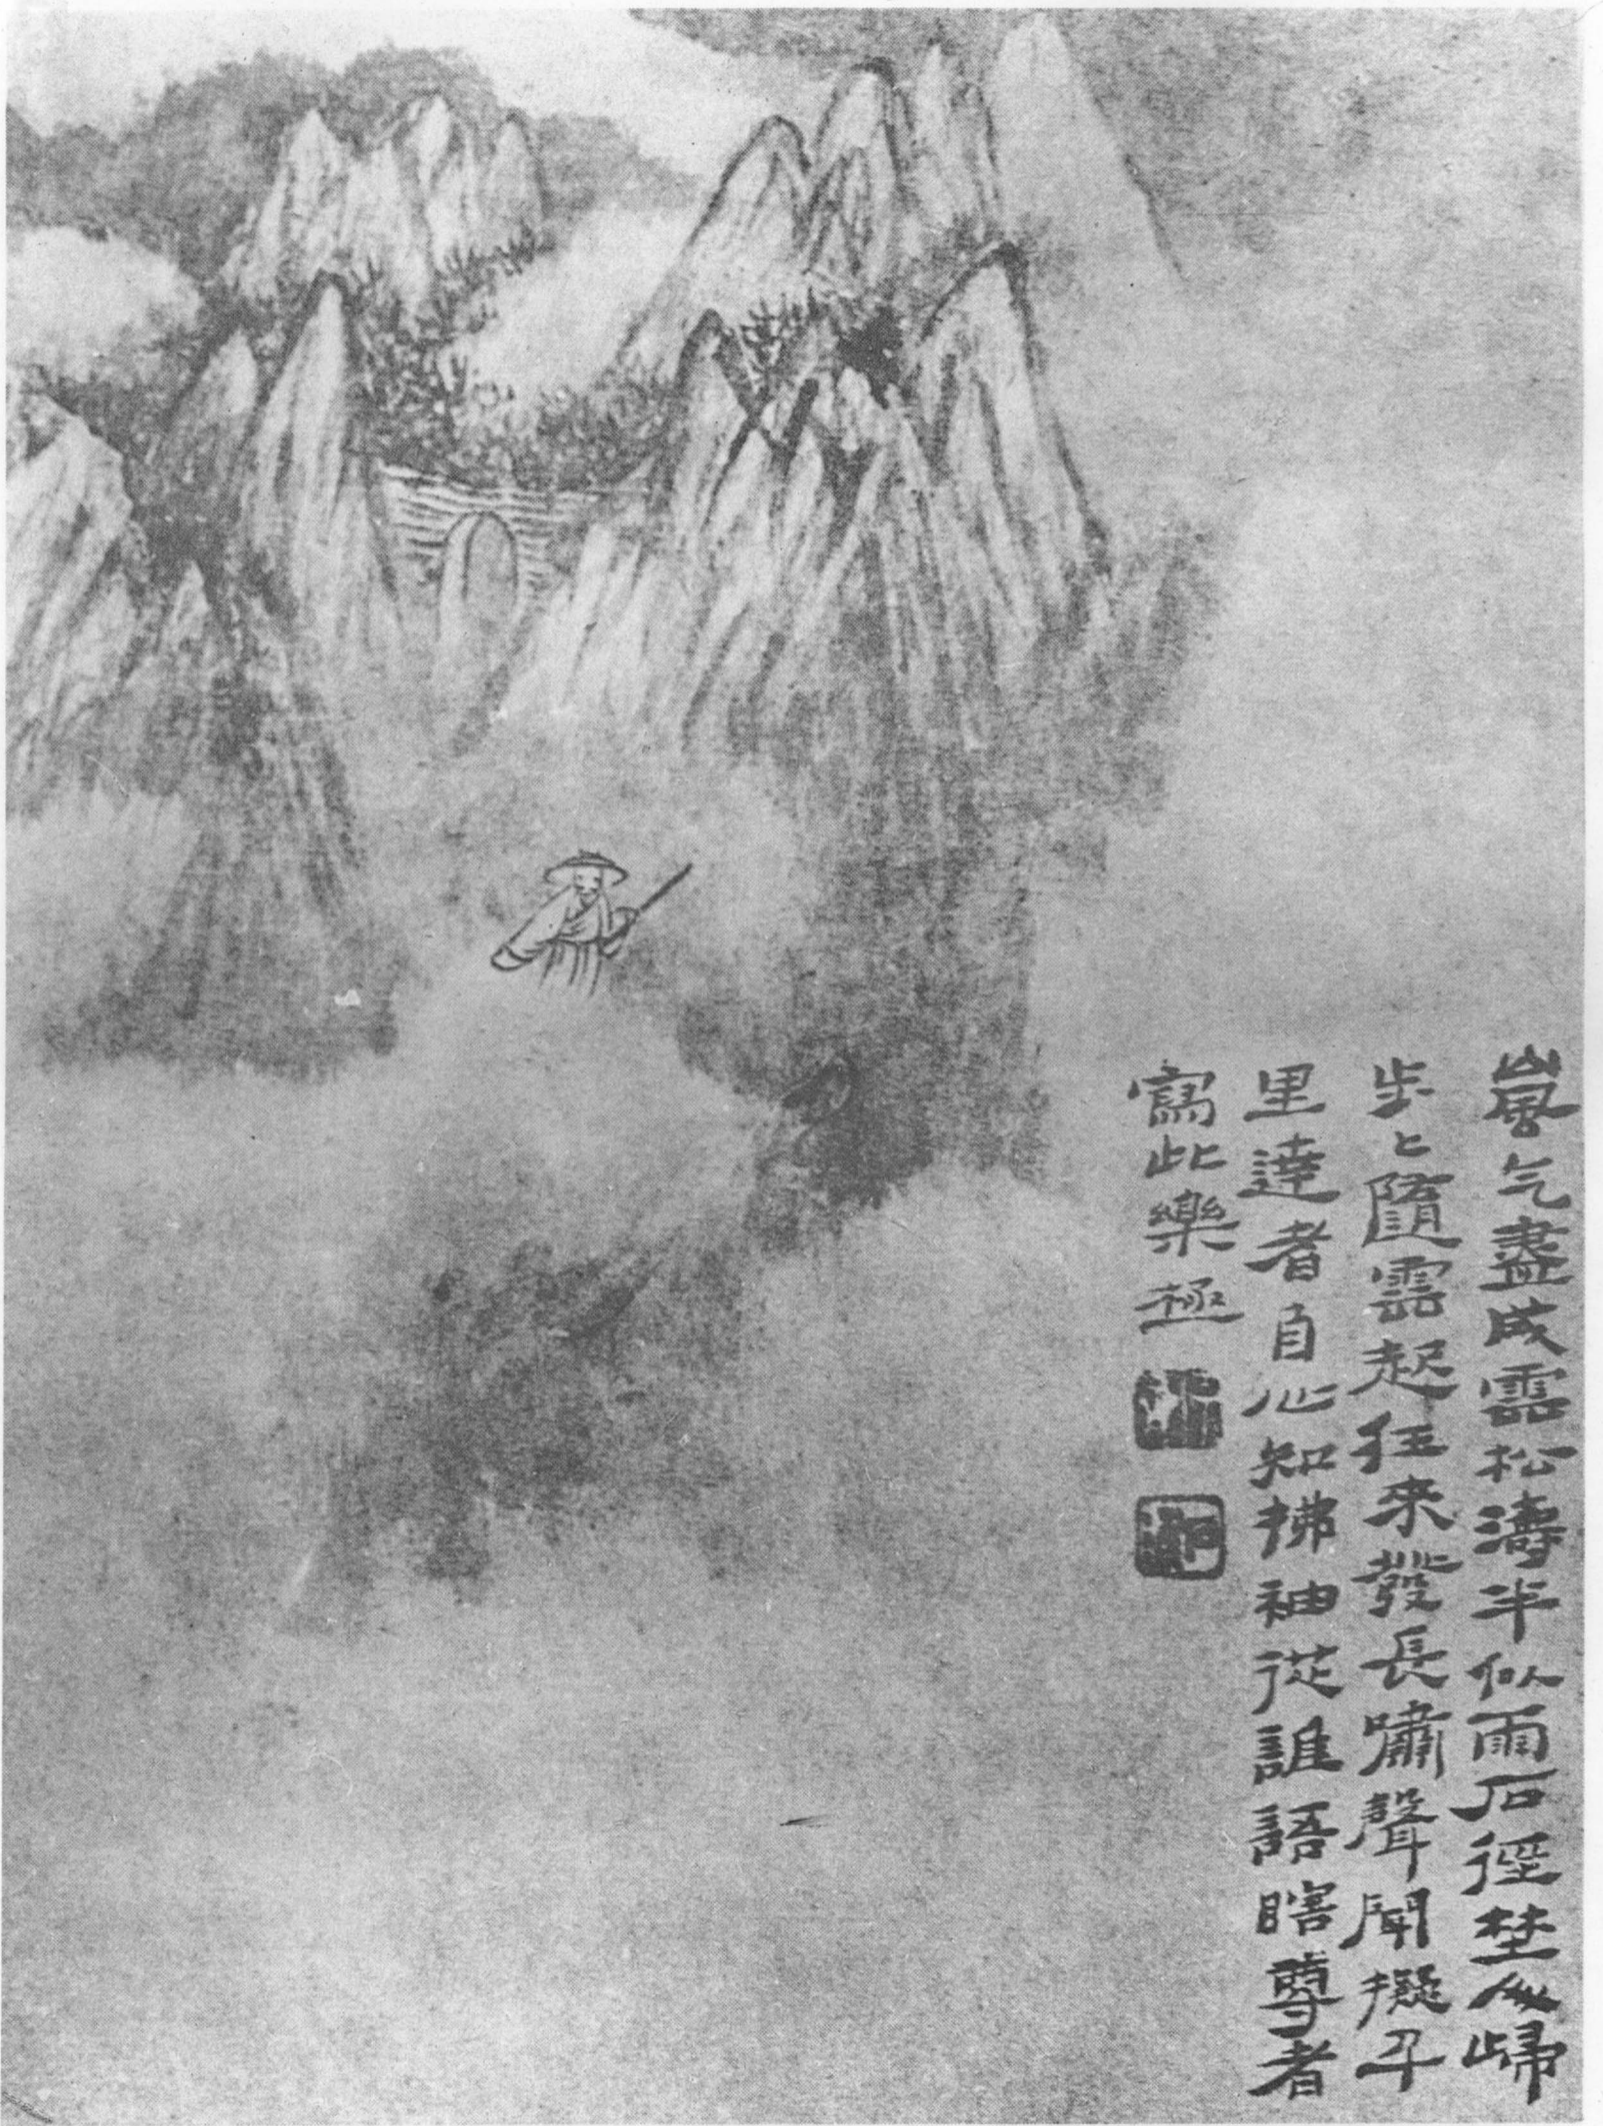 嵐气盡成雲松濤半似雨石徑埜人歸
步〻隨雲起狂來發長嘯聲聞擬千
里達者自心知拂袖從誰語瞎尊者
寫此樂極